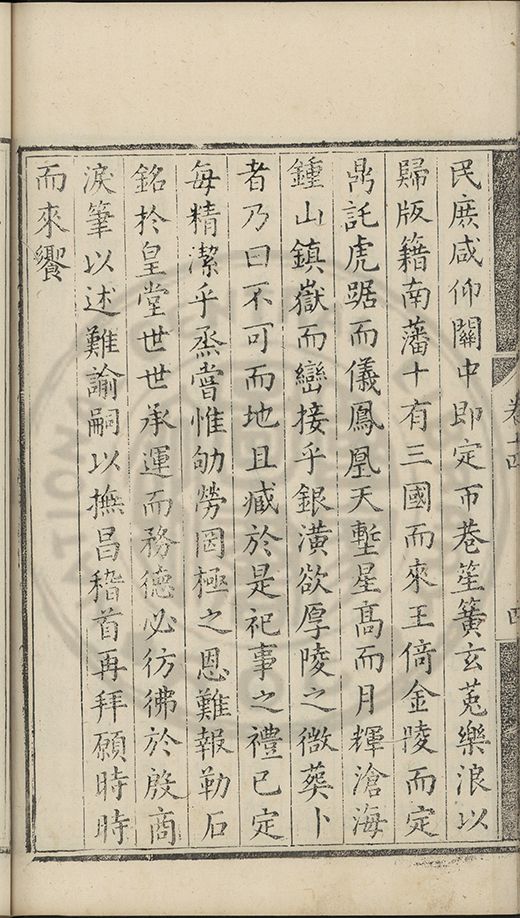 民庶咸仰關中即定市巷笙簧玄菟樂浪以
歸版籍南藩十有三國而來王倚金陵而定
鼎託虎踞而儀鳳凰天塹星高而月輝滄海
鍾山鎮嶽而巒接乎銀潢欲厚陵之微葬卜
者乃曰不可而地且臧於是祀事之禮已定
每精潔乎烝嘗惟劬勞罔極之恩難報勒石
銘於皇堂世世承運而務德必彷彿於殷商
淚筆以述難諭嗣以撫昌稽首再拜願時時
而來饗
卷十四
四